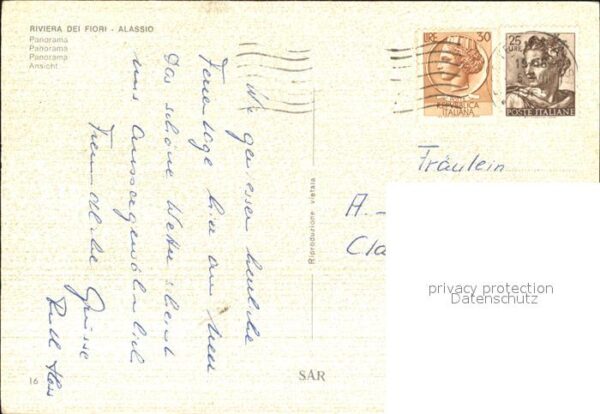 RIVIERA DEI FIORI - ALASSIO
Panorama
Panorama
Panorama
Ansicht
LIRE 30
REPUBBLICA
ITALIANA
25
LIRE
POSTE ITALIANE
Wir geniessen herrliche
Ferientage hier am Meer
Das schöne Wetter scheint
uns aussergewöhnlich
Freundliche Grüsse
Fräulein
A.-
Cla
Riproduzione vietata
privacy protection
Datenschutz
SAR
16